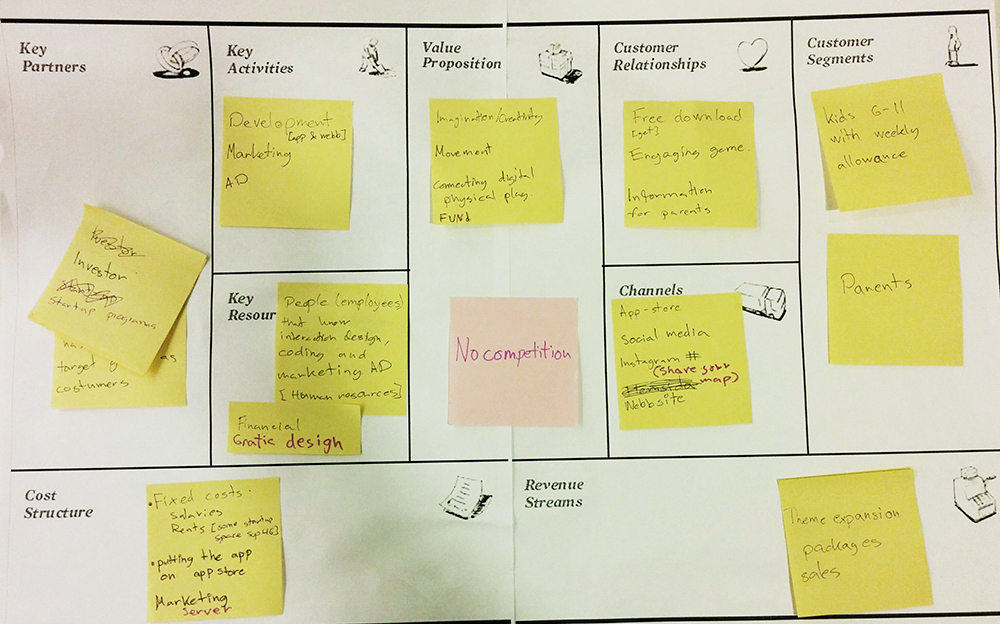 Key
Partners
Investor
startup programs
target
as
costumers
Key
Activities
Development
[app & webb]
Marketing
AD
Key
Resour
People (employees)
that know
interaction design,
coding and
marketing AD
[Human resources]
Financial
Grafic design
Value
Proposition
Imagination/Creativity
Movement
Connecting digital
physical play.
FUN!
No competition
Customer
Relationships
Free download
[get]
Engaging game.
Information
for parents
Channels
App-store
Social media
Instagram #
(share your
map)
Webbsite
Customer
Segments
Kids 6-11
with weekly
allowance
Parents
Cost
Structure
• Fixed costs:
salaries
Rents [some startup
space sup46]
• putting the app
on appstore
Marketing
server
Revenue
Streams
Theme expansion
packages
sales